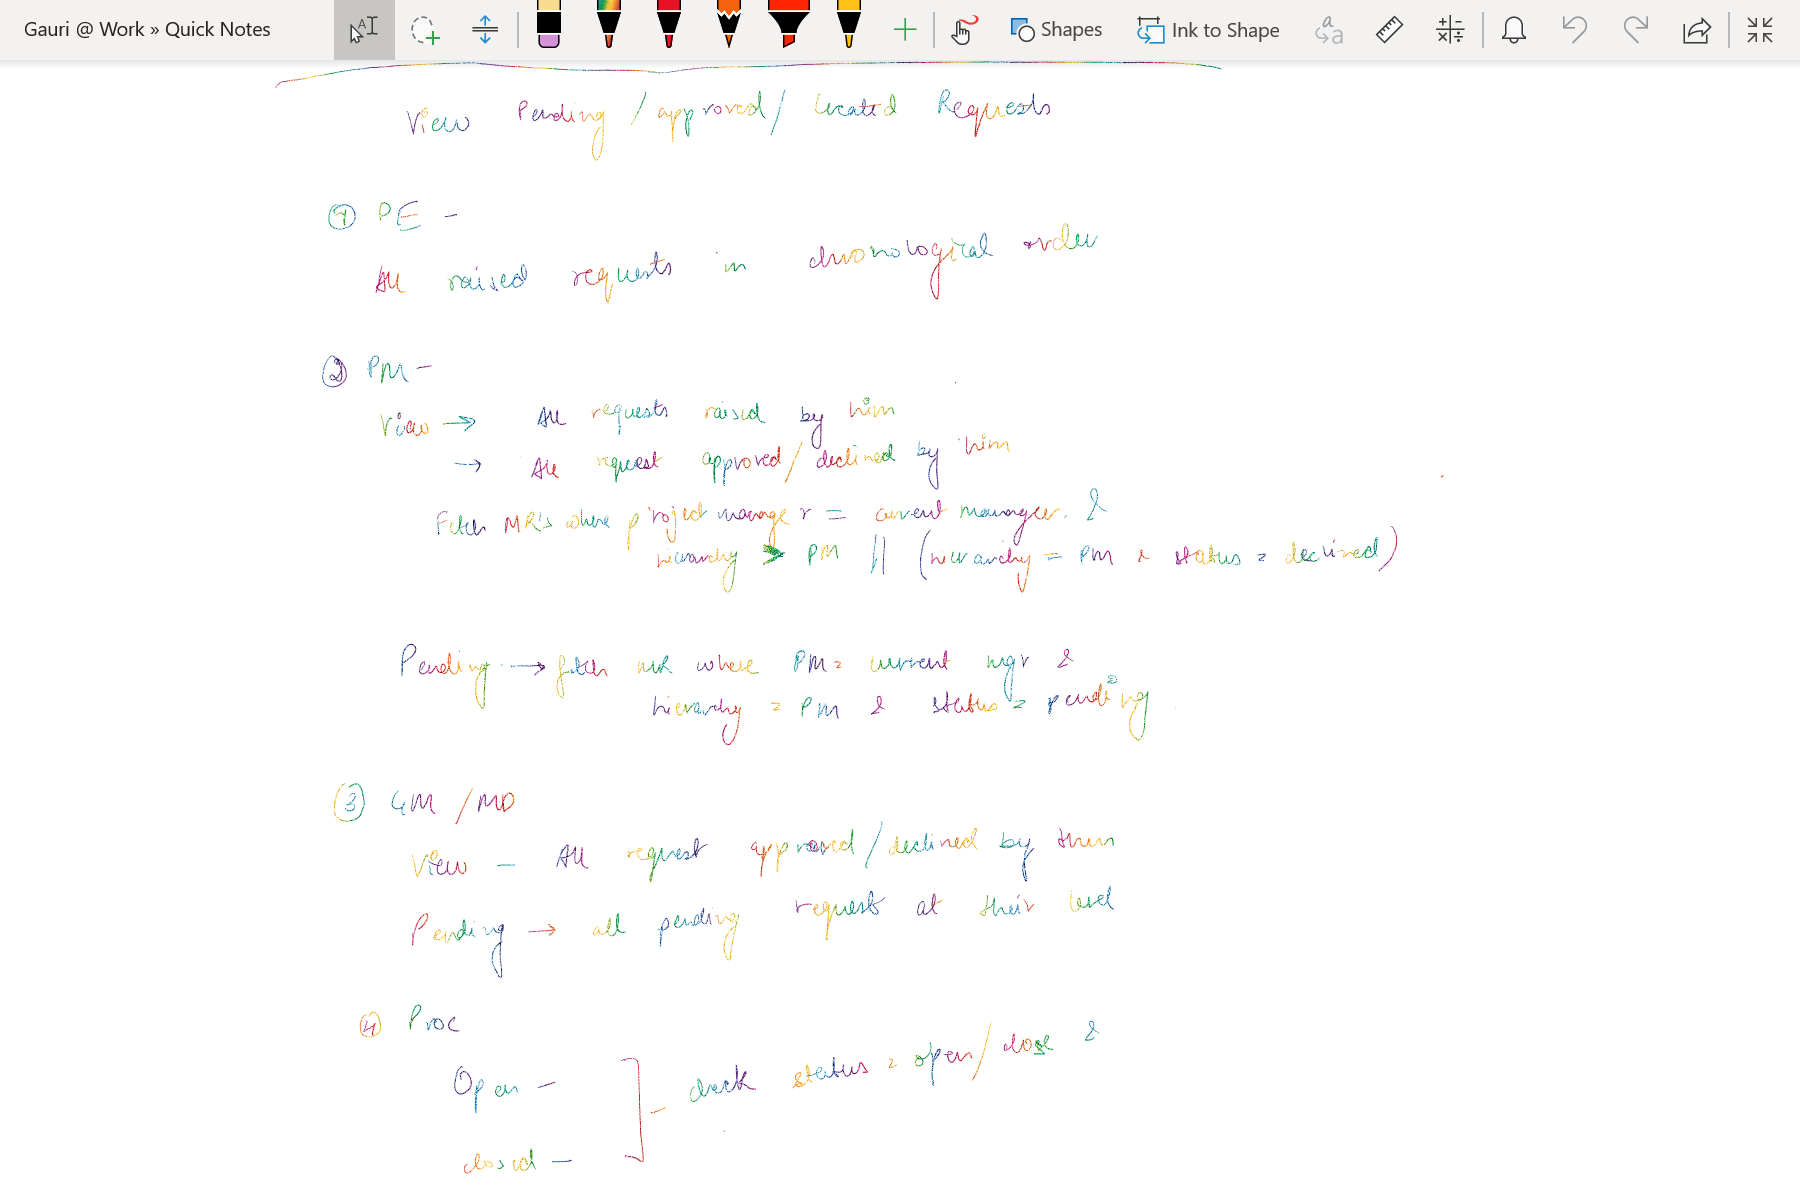 Gauri @ Work » Quick Notes
Shapes
Ink to Shape
View Pending / approved / Created Requests
① PE -
All raised requests in chronological order
② PM -
View → All requests raised by him
→ All request approved / declined by him
Fetch MR's where project manager = current manager. &
hierarchy > PM || (hierarchy = PM & status = declined)
Pending → fetch MR where PM = current mgr &
hierarchy = PM & status = pending
③ GM / MD
View - All request approved / declined by them
Pending → all pending requests at their level
④ Proc
Open -
check status = open / close &
closed -